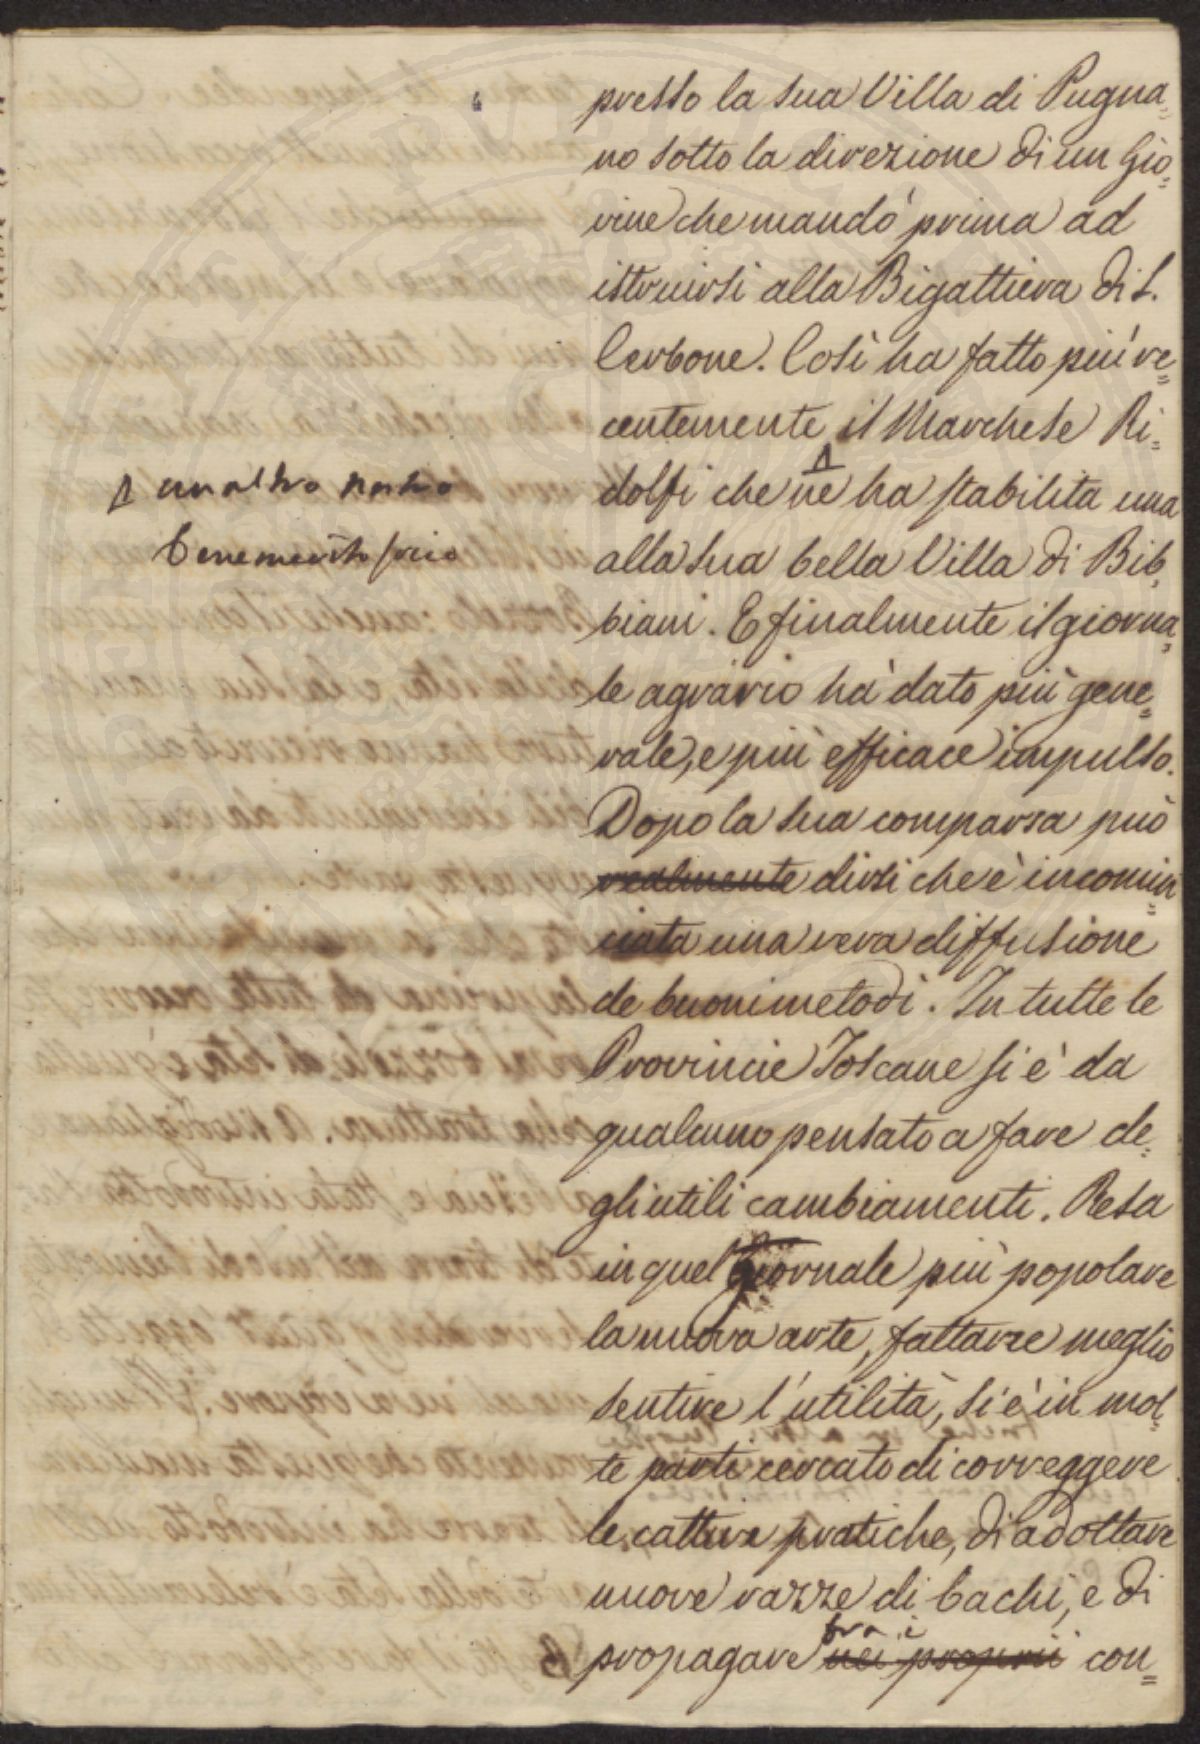 presso la sua Villa di Pugna=
no sotto la direzione di un Gio=
vine che mandò prima ad
istruirsi alla Bigattiera di S.
Cerbone. Così ha fatto più re=
centemente il Marchese Ri=
dolfi che ne ha stabilita una
un altro nostro
benemerito socio
alla sua bella Villa di Bib=
biani. E finalmente il giorna=
le agrario hà dato più gene=
rale, e più efficace impulso.
Dopo la sua comparsa può
realmente dirsi che è incomin=
ciata una vera diffusione
de buoni metodi. In tutte le
Provincie Toscane si è da
qualcuno pensato a fare de=
gli utili cambiamenti. Resa
in quel Giornale più popolare
la nuova arte, fattane meglio
sentire l'utilità, si è in mol=
te parti cercato di correggere
le cattive pratiche, di adottare
nuove razze di bachi, e di
fra i
propagare nei proprii con=